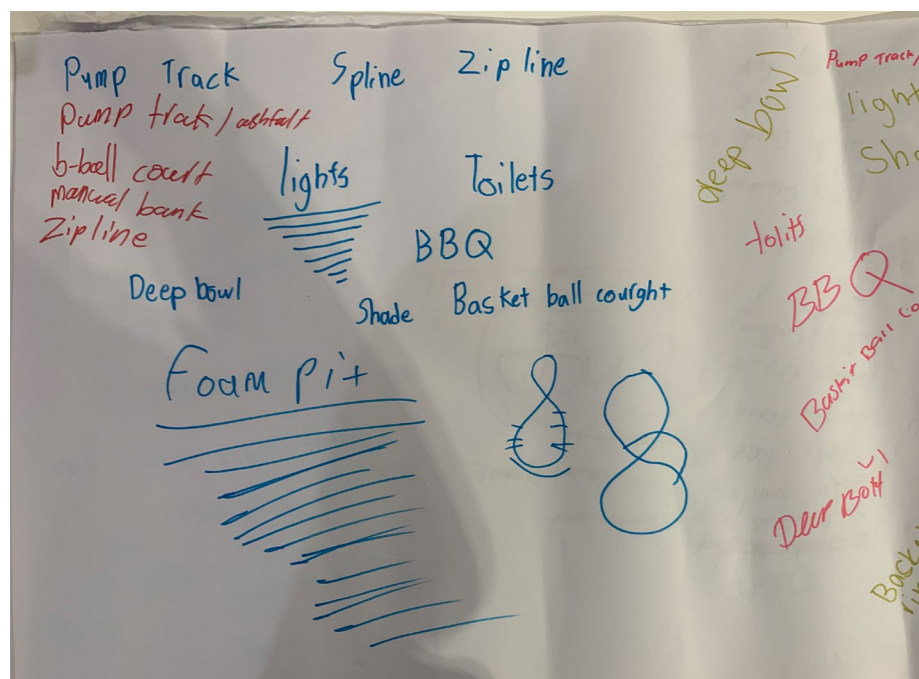 Pump Track
Spline
Zip line
Pump trak/ashfalt
b-ball court
manual bank
Zip line
lights
Toilets
BBQ
Deep bowl
Shade
Basket ball courght
Foam pit
deep bowl
Pump Track/
light
Sh
tolits
BBQ
Ball Co
Back